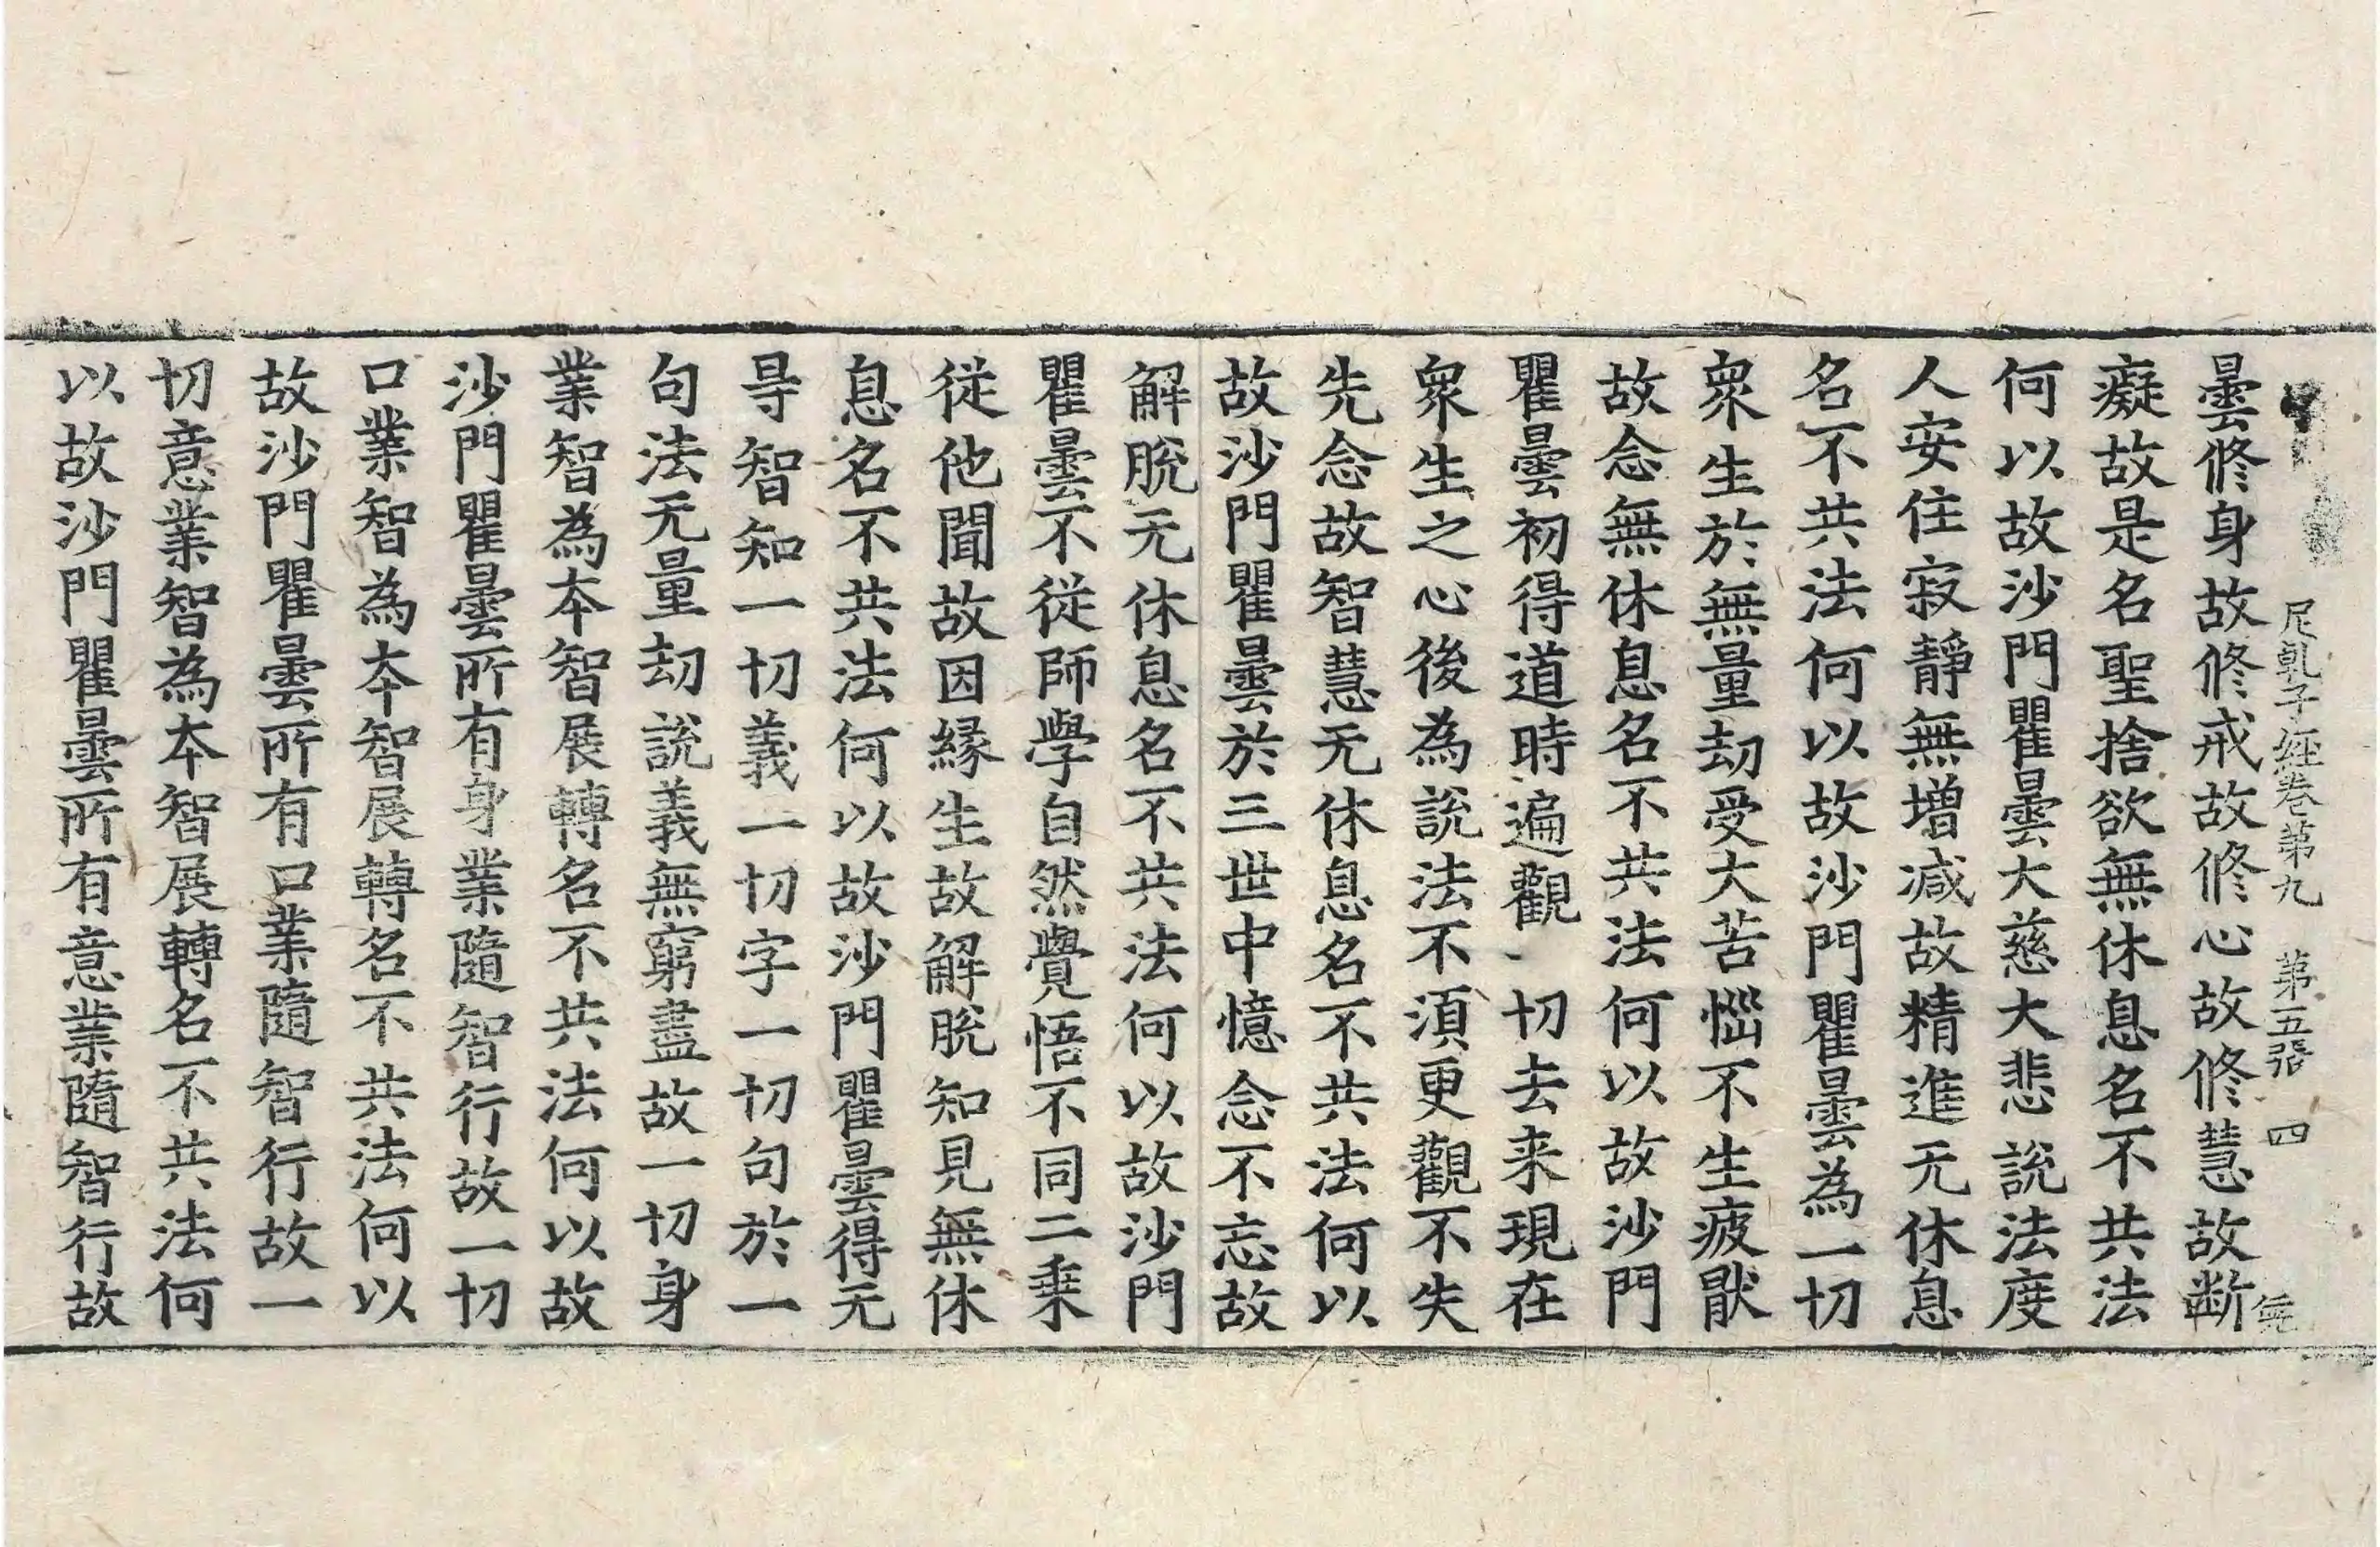 尼乹子經卷第九　第五張　四
曇修身故修戒故修心故修慧故断
癡故是名聖捨欲無休息名不共法
何以故沙門瞿曇大慈大悲說法度
人安住寂靜無增減故精進无休息
名不共法何以故沙門瞿曇為一切
衆生於無量劫受大苦惱不生疲猒
故念無休息名不共法何以故沙門
瞿曇初得道時遍觀一切去来現在
衆生之心後為說法不湏更觀不失
先念故智慧无休息名不共法何以
故沙門瞿曇於三世中憶念不忘故
解脫无休息名不共法何以故沙門
瞿曇不從師學自然覺悟不同二乗
從他聞故因緣生故解脫知見無休
息名不共法何以故沙門瞿曇得无
㝵智知一切義一切字一切句於一
句法无量劫說義無窮盡故一切身
業智為夲智展轉名不共法何以故
沙門瞿曇所有身業隨智行故一切
口業智為夲智展轉名不共法何以
故沙門瞿曇所有口業隨智行故一
切意業智為夲智展轉名不共法何
以故沙門瞿曇所有意業隨智行故